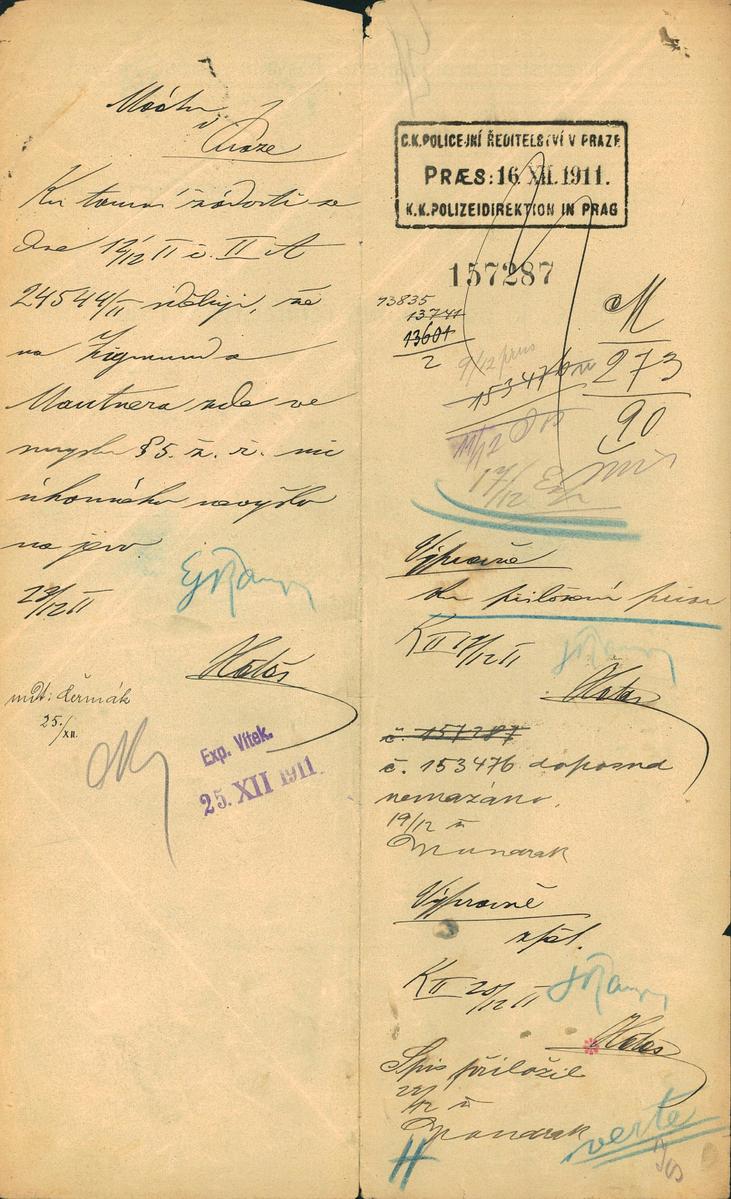 v Praze
Ku tamní žádosti ze
dne 12/12 11 č. II A
24544/11 sděluji, že
na Zigmunda
Mautnera zde ve
smyslu § 5. ž. ř. nic
úhonného nevyšlo
na jevo
12 11
mdt: Čermák
25./XII.
Exp. Vítek.
25. XII 1911.
C.K. POLICEJNÍ ŘEDITELSTVÍ V PRAZE
PRÆS: 16 XII. 1911.
K.K. POLIZEIDIREKTION IN PRAG
157287
73835
13741
13601
2
M
273
90
9/12
153476
Výpravně
ku přiložení
K II 12 11
č. 157287
č. 153476 doposud
nemazáno.
19/12 11
Mundrak
Výpravně
zpět.
K II 20/12 11
Spis přiložil
12 11
Mundrak
verte